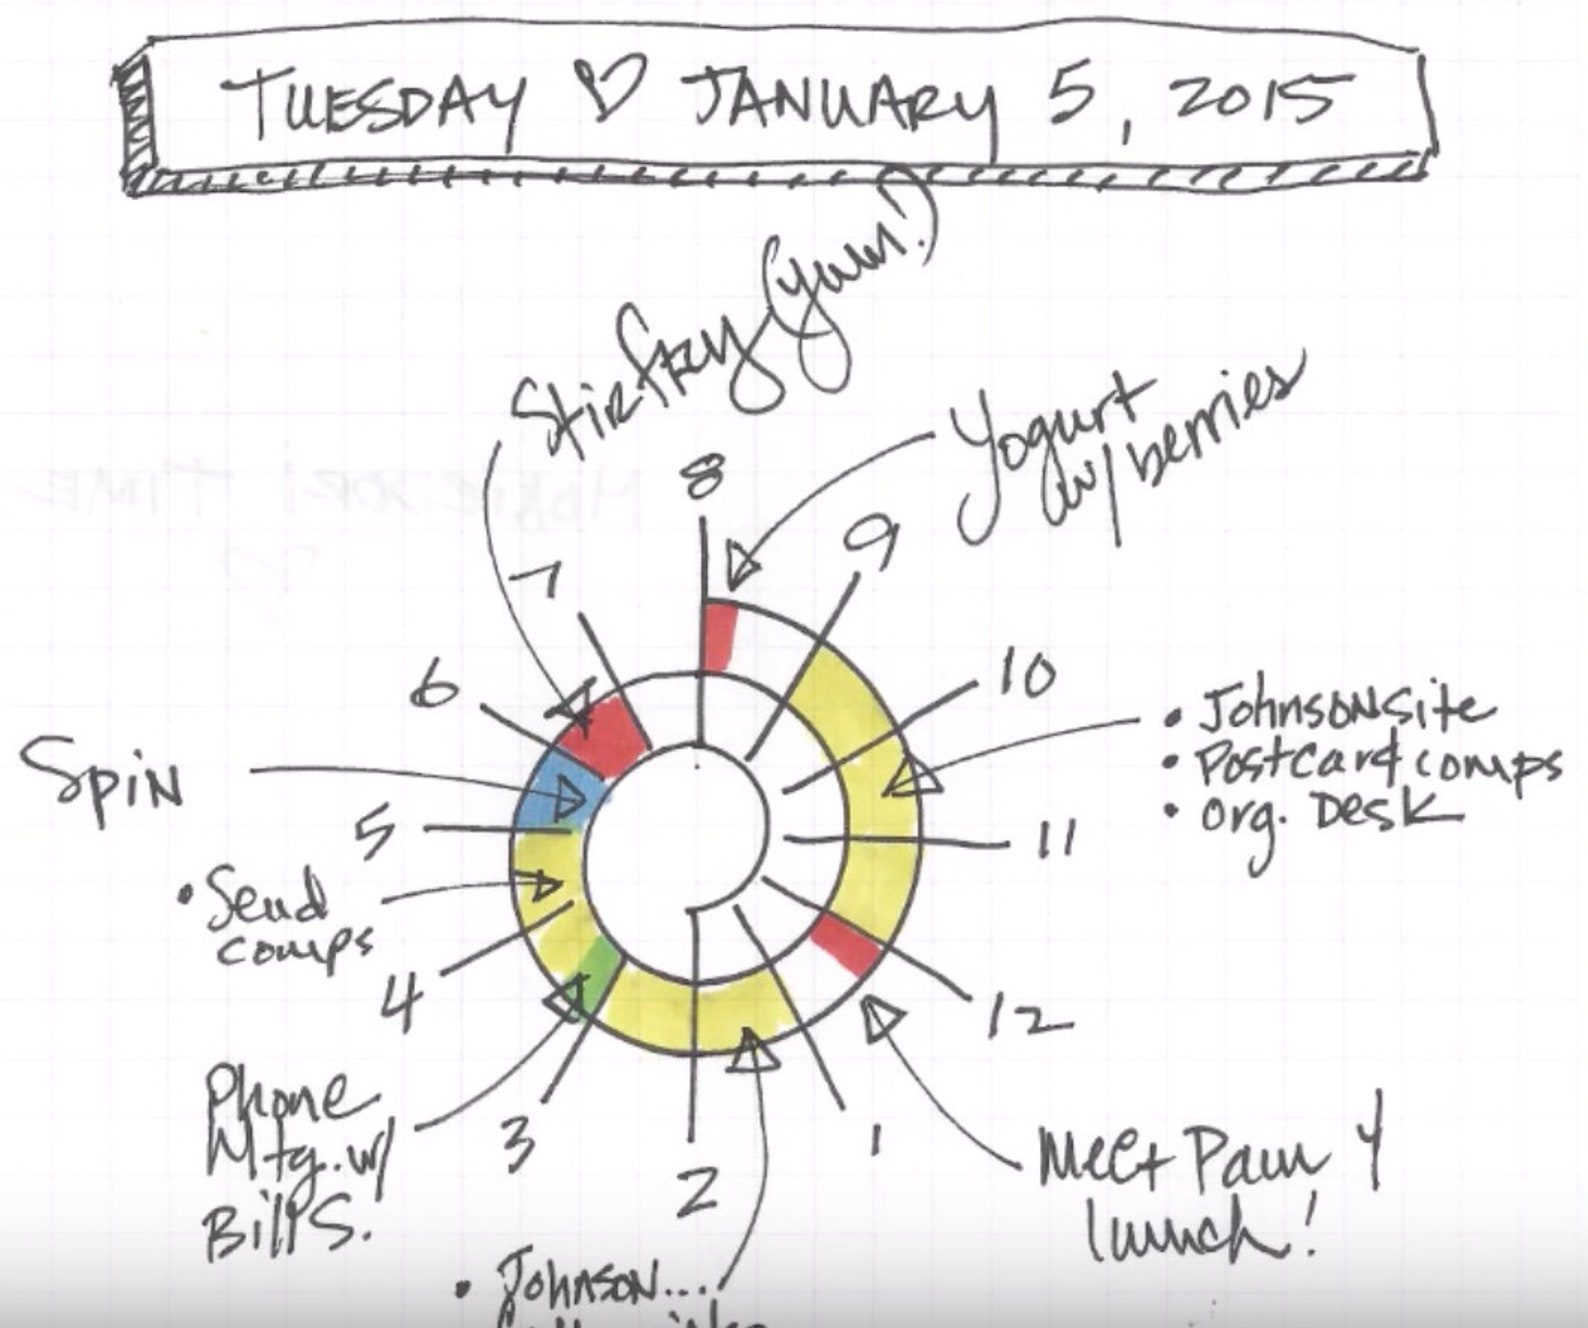 TUESDAY ♡ JANUARY 5, 2015
Stirfry (yum!)
Yogurt
w/ berries
8
9
7
10
6
• Johnson site
• Postcard comps
• Org. Desk
Spin
5
11
• Send
comps
4
12
Phone
Mtg. w/
Bill S.
3
1
2
Meet Pam 4
lunch!
• Johnson...